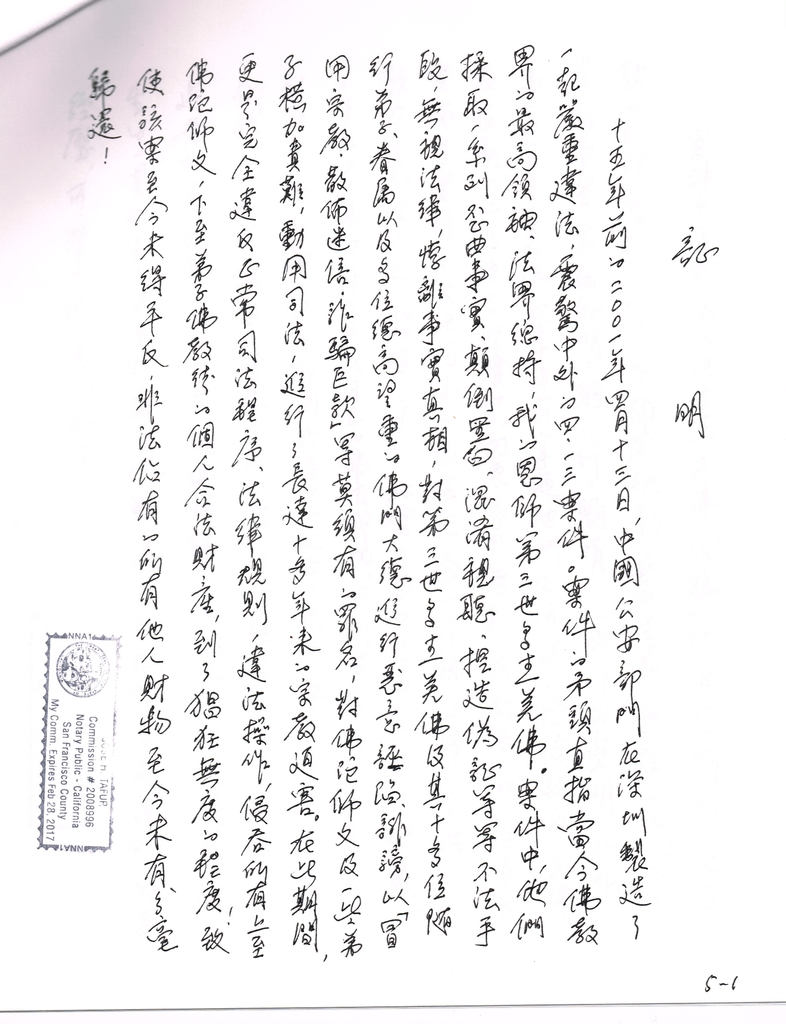 証 明
十五年前的二〇〇一年四月十三日，中國公安部門在深圳製造了
一起嚴重違法、震驚中外的四．一三案件。案件的矛頭直指當今佛教
界的最高領袖、法界總持，我的恩師第三世多杰羌佛。案件中，他們
採取一系列歪曲事實、顛倒黑白、混淆視聽、捏造偽証等等不法手
段，無視法律，背離事實真相，對第三世多杰羌佛及其十多位隨
行弟子、眷屬以及多位德高望重的佛門大德進行惡意誣陷、誹謗，以「冒
用宗教、散佈迷信、詐騙巨款」等莫須有的罪名，對佛陀師父及一些弟
子橫加責難，動用司法，進行了長達十多年來的宗教迫害。在此期間，
更是完全違反正常司法程序、法律規則，違法操作，侵吞所有上至
佛陀師父，下至弟子佛教徒的個人合法財產，到了猖狂無度的程度！致
使該案至今未得平反，非法佔有的所有他人財物至今未有分毫
歸還！
5-1
NNA1
Commission # 2008996
Notary Public - California
San Francisco County
My Comm. Expires Feb 28, 2017
NNA1